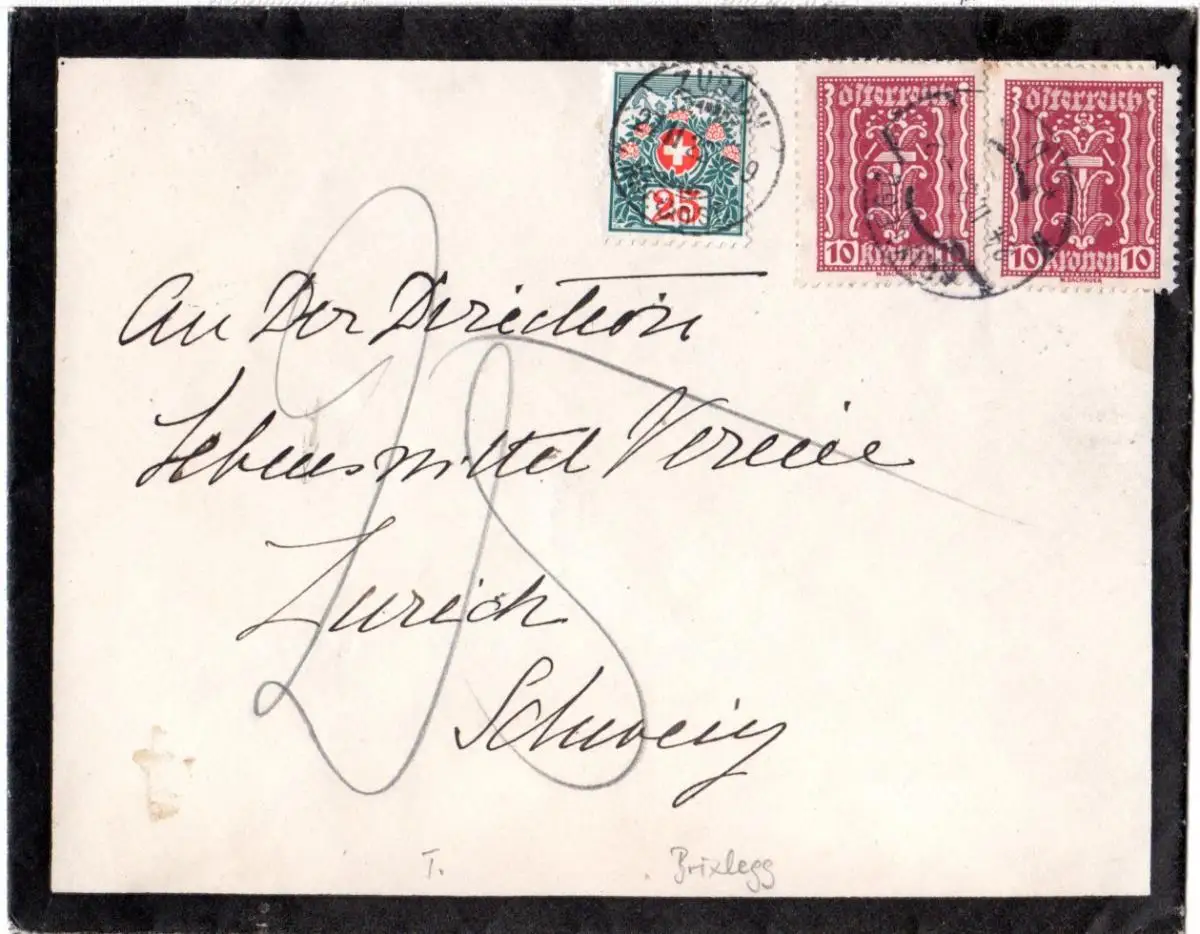 ZURICH
25
Österreich
10 Kronen 10
Österreich
10 Kronen 10
An Der Direction
Lebensmittel Verein
Zurich
Schweiz
25
T.
Brixlegg